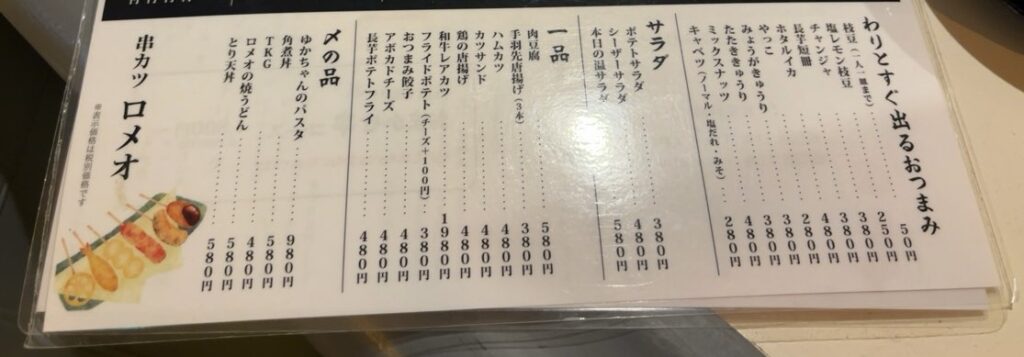 わりとすぐ出るおつまみ
枝豆(一人一皿まで) 50円
塩レモン枝豆 250円
チャンジャ 380円
長芋短冊 380円
ホタルイカ 480円
やっこ 280円
みょうがきゅうり 380円
たたききゅうり 380円
ミックスナッツ 480円
キャベツ(ノーマル・塩だれ・みそ) 280円
サラダ
ポテトサラダ 380円
シーザーサラダ 480円
本日の温サラダ 580円
一品
肉豆腐 580円
手羽先唐揚げ(3本) 380円
ハムカツ 480円
カツサンド 480円
鶏の唐揚げ 480円
和牛レアカツ 1980円
フライドポテト(チーズ+100円) 380円
おつまみ餃子 380円
アボカドチーズ 480円
長芋ポテトフライ 480円
〆の品
ゆかちゃんのパスタ 980円
角煮丼 580円
TKG 480円
ロメオの焼うどん 580円
とり天丼 580円
串カツ ロメオ
※表示価格は税別価格です